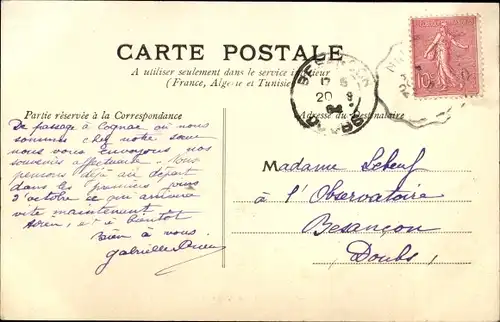 CARTE POSTALE
A utiliser seulement dans le service intérieur
(France, Algérie et Tunisie)
Partie réservée à la Correspondance
Adresse du Destinataire
BESANÇON
17
20 9
04
DOUBS
10
De passage à Cognac où nous
sommes chez notre sœur
nous vous envoyons nos
souvenirs affectueux. Nous
pensons déjà au départ
dans les premiers jours
d'octobre ce qui arrivera
vite maintenant
et à bientôt
Bien à vous
Gabrielle
Madame Lebeuf
à l'Observatoire
Besançon
Doubs